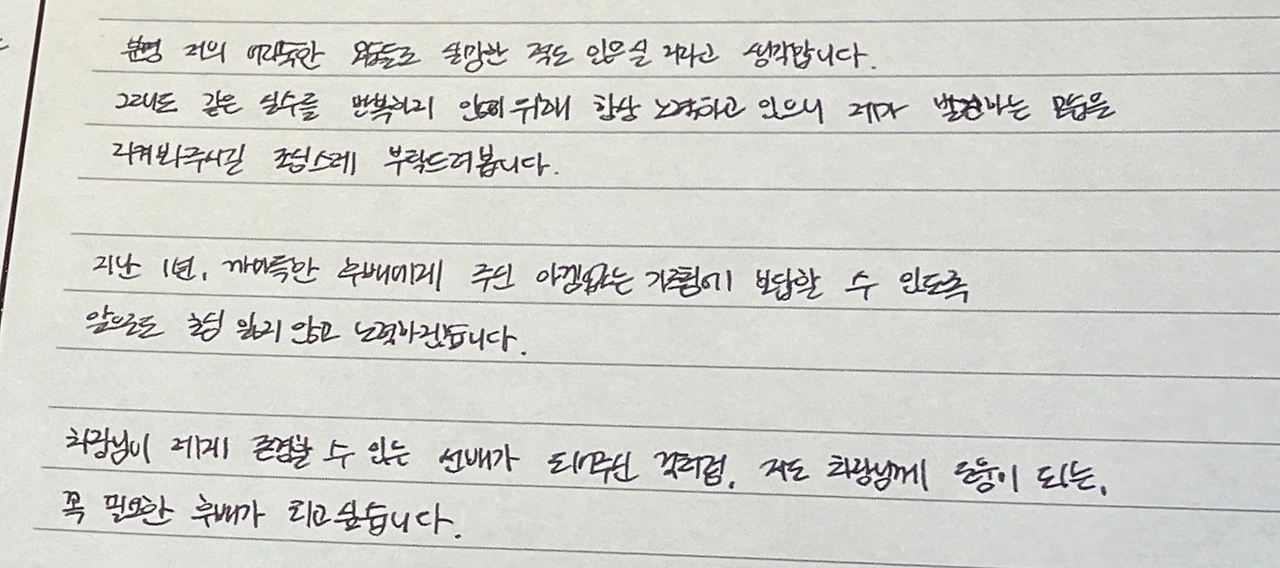 분명 저의 어리숙한 모습들로 실망한 적도 있으실 거라고 생각합니다.
그래도 같은 실수를 반복하지 않기 위해 항상 노력하고 있으니 제가 발전하는 모습을
지켜봐주시길 조심스레 부탁드려봅니다.
지난 1년, 까마득한 후배에게 주신 아낌없는 가르침에 보답할 수 있도록
앞으로도 초심 잃지 않고 노력하겠습니다.
차장님이 제게 존경할 수 있는 선배가 되어주신 것처럼, 저도 차장님께 도움이 되는,
꼭 필요한 후배가 되고싶습니다.